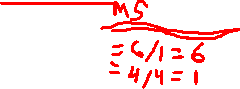 MS
= 6/1 = 6
= 4/4 = 1